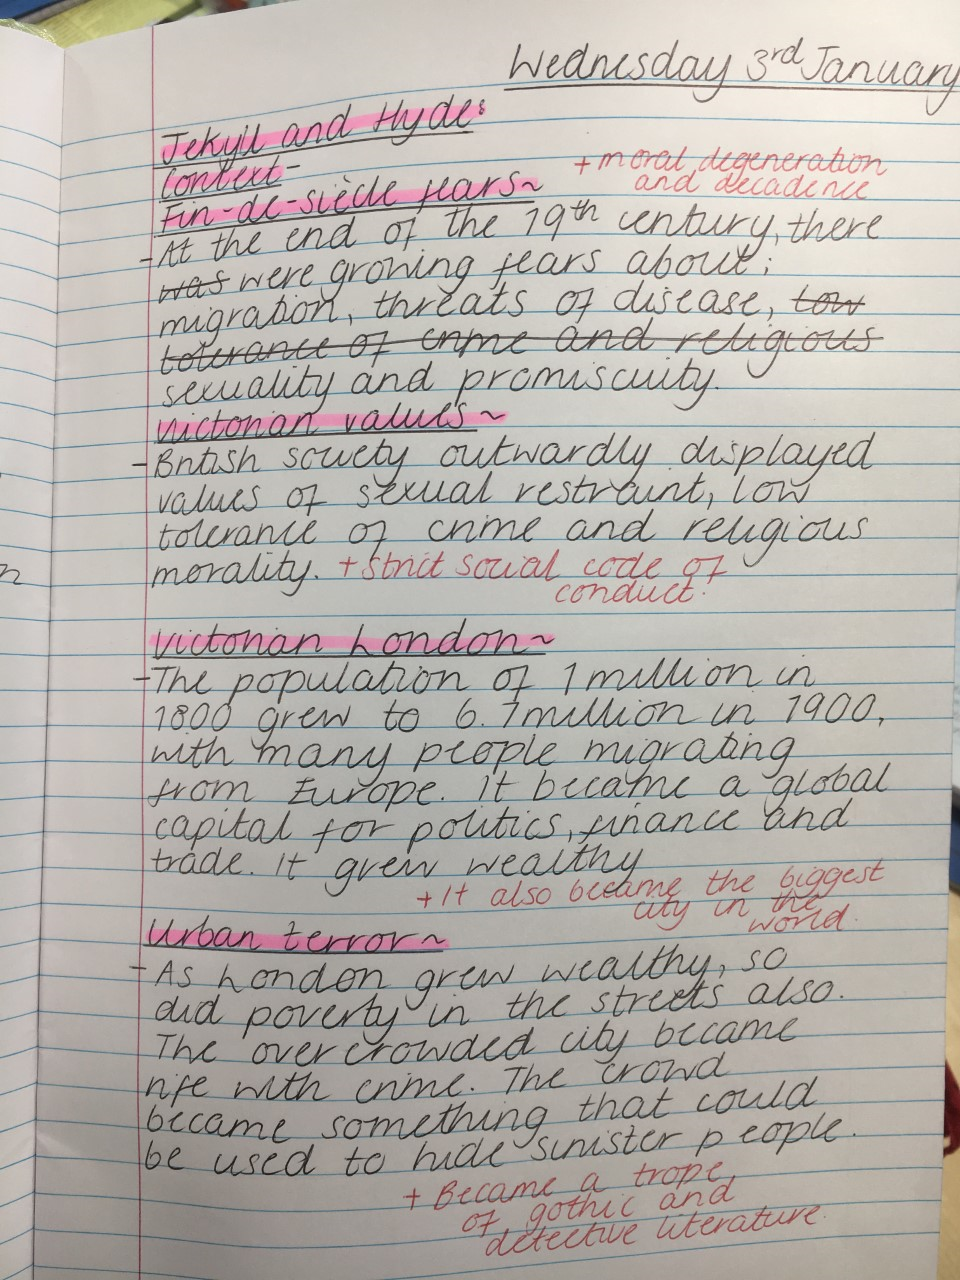 Wednesday 3rd January
Jekyll and Hyde:
Context-
+ moral degeneration
and decadence
Fin-de-siècle fears~
-At the end of the 19th century, there
was were growing fears about;
migration, threats of disease, low
tolerance of crime and religious
sexuality and promiscuity.
Victorian values~
-British society outwardly displayed
values of sexual restraint, low
tolerance of crime and religious
morality. + strict social code of
conduct.
n
Victorian London~
-The population of 1 million in
1800 grew to 6.7million in 1900,
with many people migrating
from Europe. It became a global
capital for politics, finance and
trade. It grew wealthy
+ It also became the biggest
city in the
world.
Urban terror~
-As London grew wealthy, so
did poverty in the streets also.
The overcrowded city became
rife with crime. The crowd
became something that could
be used to hide sinister people.
+ Became a trope
of gothic and
detective literature.